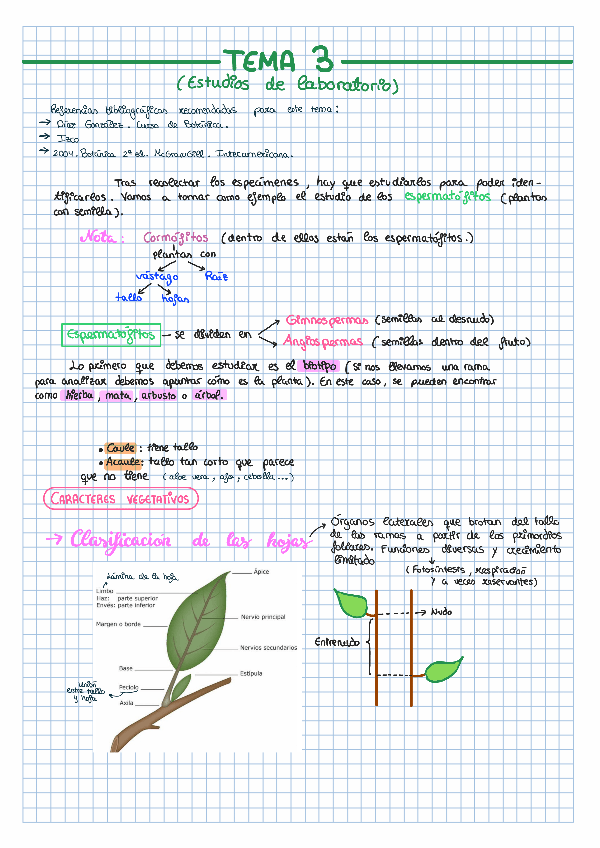 TEMA 3
(Estudios de laboratorio)
Referencias bibliográficas recomendadas para este tema:
→ Díaz González. Curso de Botánica.
→ Izco
→ 2004. Botánica 2ª ed. McGrawHill. Interamericana.
Tras recolectar los especímenes, hay que estudiarlos para poder iden-
tificarlos. Vamos a tomar como ejemplo el estudio de los espermatófitos (plantas
con semilla).
Nota: Cormófitos (dentro de ellos están los espermatófitos.)
plantas con
vástago Raíz
tallo hojas
Gimnospermas (semillas al desnudo)
Espermatófitos - se dividen en
Angiospermas (semillas dentro del fruto)
Lo primero que debemos estudiar es el biotipo (si nos llevamos una rama
para analizar debemos apuntar cómo es la planta). En este caso, se pueden encontrar
como hierba, mata, arbusto o árbol.
• Caule: tiene tallo
• Acaule: tallo tan corto que parece
que no tiene (aloe vera, ajo, cebolla...)
CARACTERES VEGETATIVOS
→ Clasificación de las hojas
Órganos laterales que brotan del tallo
de las ramas a partir de los primordios
foliares. Funciones diversas y crecimiento
limitado
(Fotosíntesis, respiración
y a veces reservantes)
Lámina de la hoja
Ápice
Limbo
Haz: parte superior
Envés: parte inferior
Margen o borde
Nervio principal
Nervios secundarios
Base
Estípula
Peciolo
Unión
entre tallo
y hoja
Axila
Nudo
Entrenudo